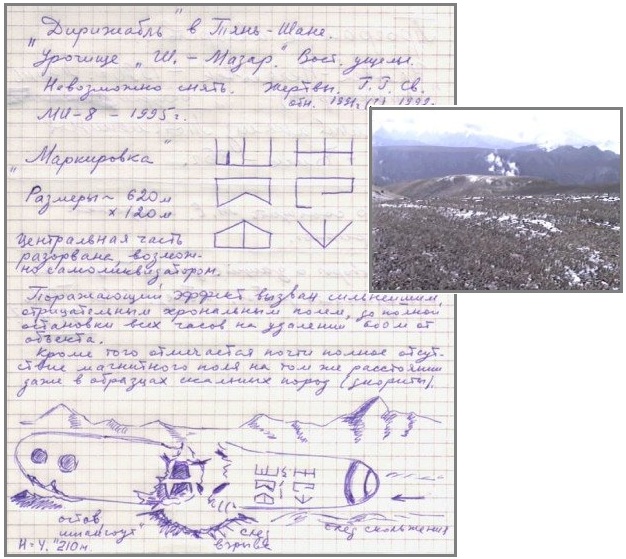 „Дирижабль" в Тянь-Шане.
Урочище „Ш. – Мазар." Вост. ущелье.
Невозможно снять. Жертвы. Г.Г. Св.
МИ-8 – 1995 г.
„Маркировка"
Размеры ~ 620 м
x 120 м
Центральная часть
разорвана, возмож-
но самоликвидатором.
Поражающий эффект вызван сильнейшим,
отрицательным хрональным полем, до полной
остановки всех часов на удалении 600 м от
объекта.
Кроме того отмечается почти полное отсут-
ствие магнитного поля на том же расстоянии
даже в образцах скальных пород (диориты).
остов
„шпангоут"
след
взрыва
след скольжения